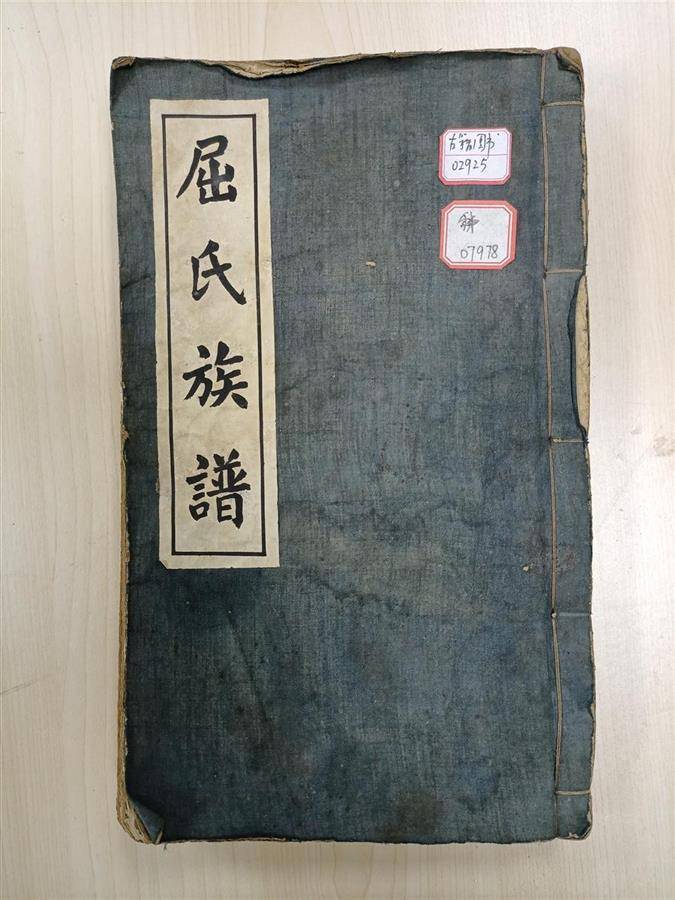 屈氏族譜
古籍图书
02925
07978